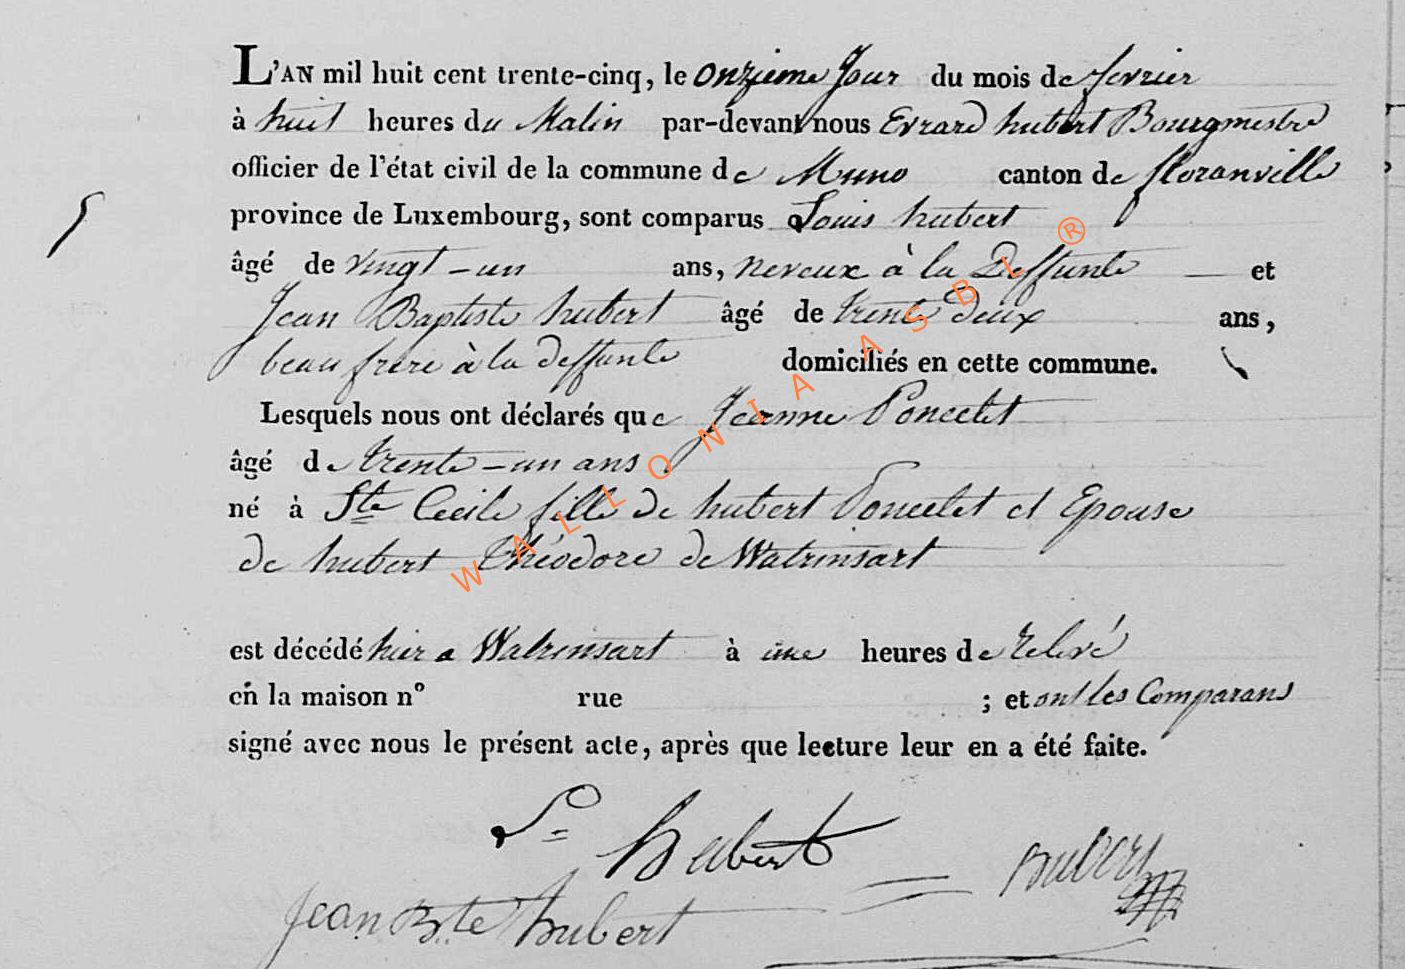 5
L'AN mil huit cent trente-cinq, le onzieme Jour du mois de fevrier
à huit heures du Matin par-devant nous Evrard hubert Bourgmestre
officier de l'état civil de la commune de Muno canton de floranville
province de Luxembourg, sont comparus Louis hubert
âgé de vingt-un ans, neveux à la Deffunte et
Jean Baptiste hubert âgé de trente deux ans,
beau frere à la deffunte domiciliés en cette commune.
Lesquels nous ont déclarés que Jeanne Poncelet
âgé de trente-un ans
né à Ste Cecile fille de hubert Poncelet et Epouse
de hubert Théodore de Watrinsart
est décédé hier a Watrinsart à une heures de relevé
en la maison nº rue ; et ont les Comparans
signé avec nous le présent acte, après que lecture leur en a été faite.
Ls hubert hubert
Jean Bte hubert
WALLONIA ASBL ®